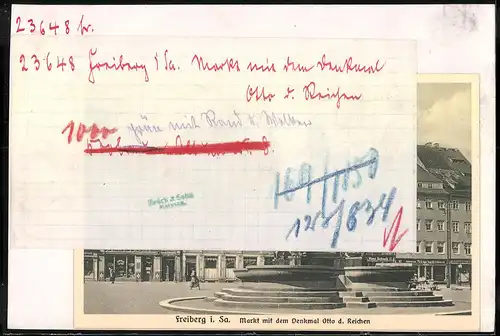 23648 br.
23648 Freiberg i/Sa. Markt mit dem Denkmal
Otto d. Reichen
1000 grün mit Rand u. Wolken
Brück & Sohn
Meissen.
168/1150
123/834
Freiberg i. Sa. Markt mit dem Denkmal Otto d. Reichen